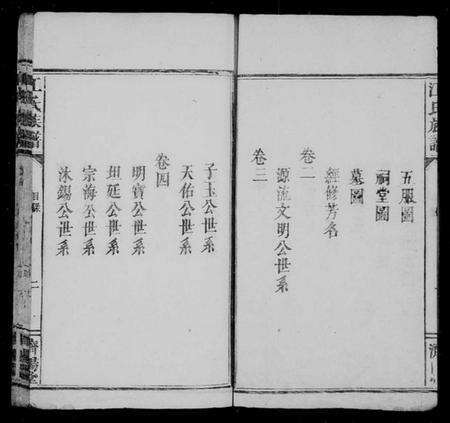 江氏族譜
五服圖
祠堂圖
墓圖
卷二
經修芳名
卷三
源流文明公世系
子玉公世系
天佑公世系
卷四
明寶公世系
珇廷公世系
宗海公世系
泳錫公世系
江氏族譜
目錄
二
濟陽堂